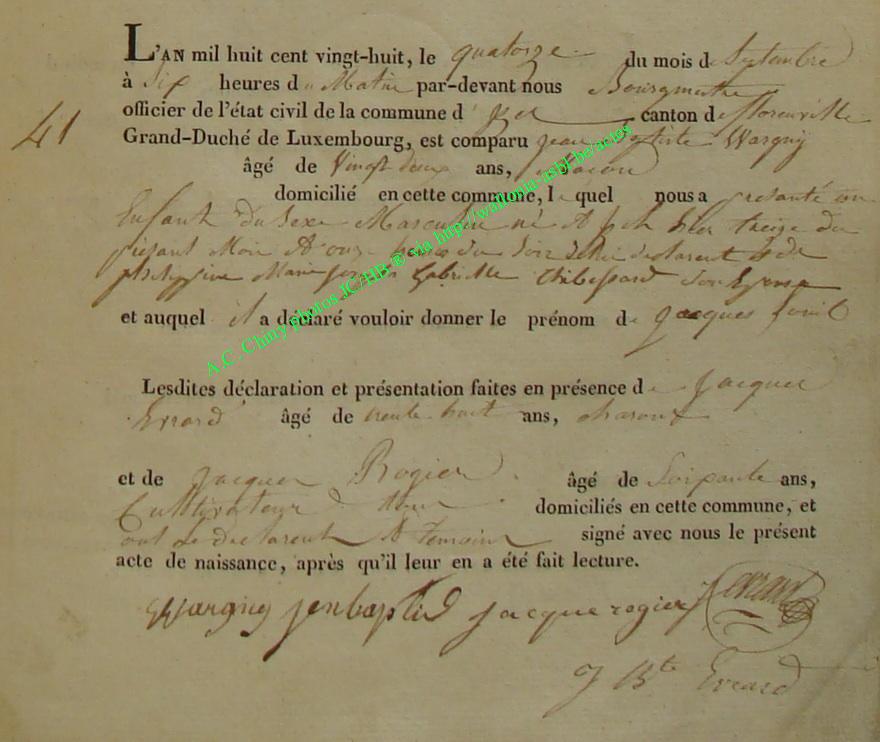 L'AN mil huit cent vingt-huit, le quatorze du mois de Septembre
à Six heures du Matin par-devant nous Bourgmestre
officier de l'état civil de la commune d' canton de florenville
41
Grand-Duché de Luxembourg, est comparu jean Baptiste Wargny
âgé de Vingt deux ans, Maçon
domicilié en cette commune, lequel nous a présenté un
Enfant du Sexe Masculin né A hier treize du
présent Mois A onze heures du Soir de lui declarent & de
Marie Gabrielle Son Epouse
et auquel il a déclaré vouloir donner le prénom de jacques
Lesdites déclaration et présentation faites en présence de Jacques
Errard âgé de trente huit ans, charon
et de Jacques Rogier âgé de Soixante ans,
Cultivateur domiciliés en cette commune, et
ont le declarent & Temoins signé avec nous le présent
acte de naissance, après qu'il leur en a été fait lecture.
Wargny jenbaptis jacque rogier J errard
J Bte Errard
A.C. Chiny photos JC/HB ® via http://wallonia-asbl.be/actes